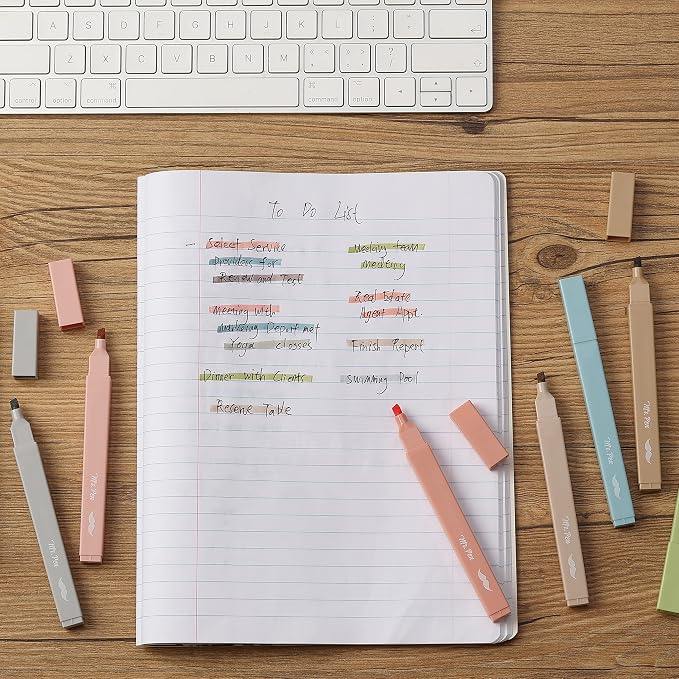 A S D F G H J K L
Z X C V B N M
control option command command option
To Do List
Select Service
Providers for
Review and Test
Meeting with
Marketing Department
Yoga classes
Dinner with Clients
Reserve Table
Weekly team
meeting
Real Estate
Agent Appt.
Finish Report
Swimming Pool
Mr. Pen
Mr. Pen
Mr. Pen
Mr. Pen
Mr. Pen
Mr. Pen